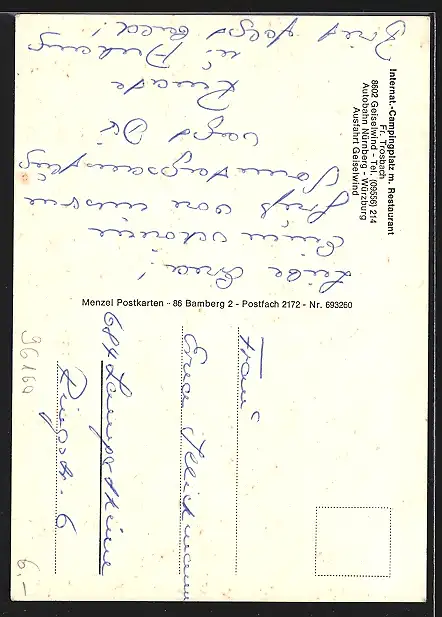 Internat.-Campingplatz m. Restaurant
Fr. Trosbach
8602 Geiselwind - Tel. (09556) 214
Autobahn Nürnberg - Würzburg
Ausfahrt Geiselwind
Liebe Erna!
Einen schönen
Gruß von unserem
Sonntagsausflug
sagt Dir
Renate
u.
Brief folgt bald!
Menzel Postkarten - 86 Bamberg 2 - Postfach 2172 - Nr. 693260
Frau
Erna
684 Lampertheim
Ringstr. 6
96160
6,-